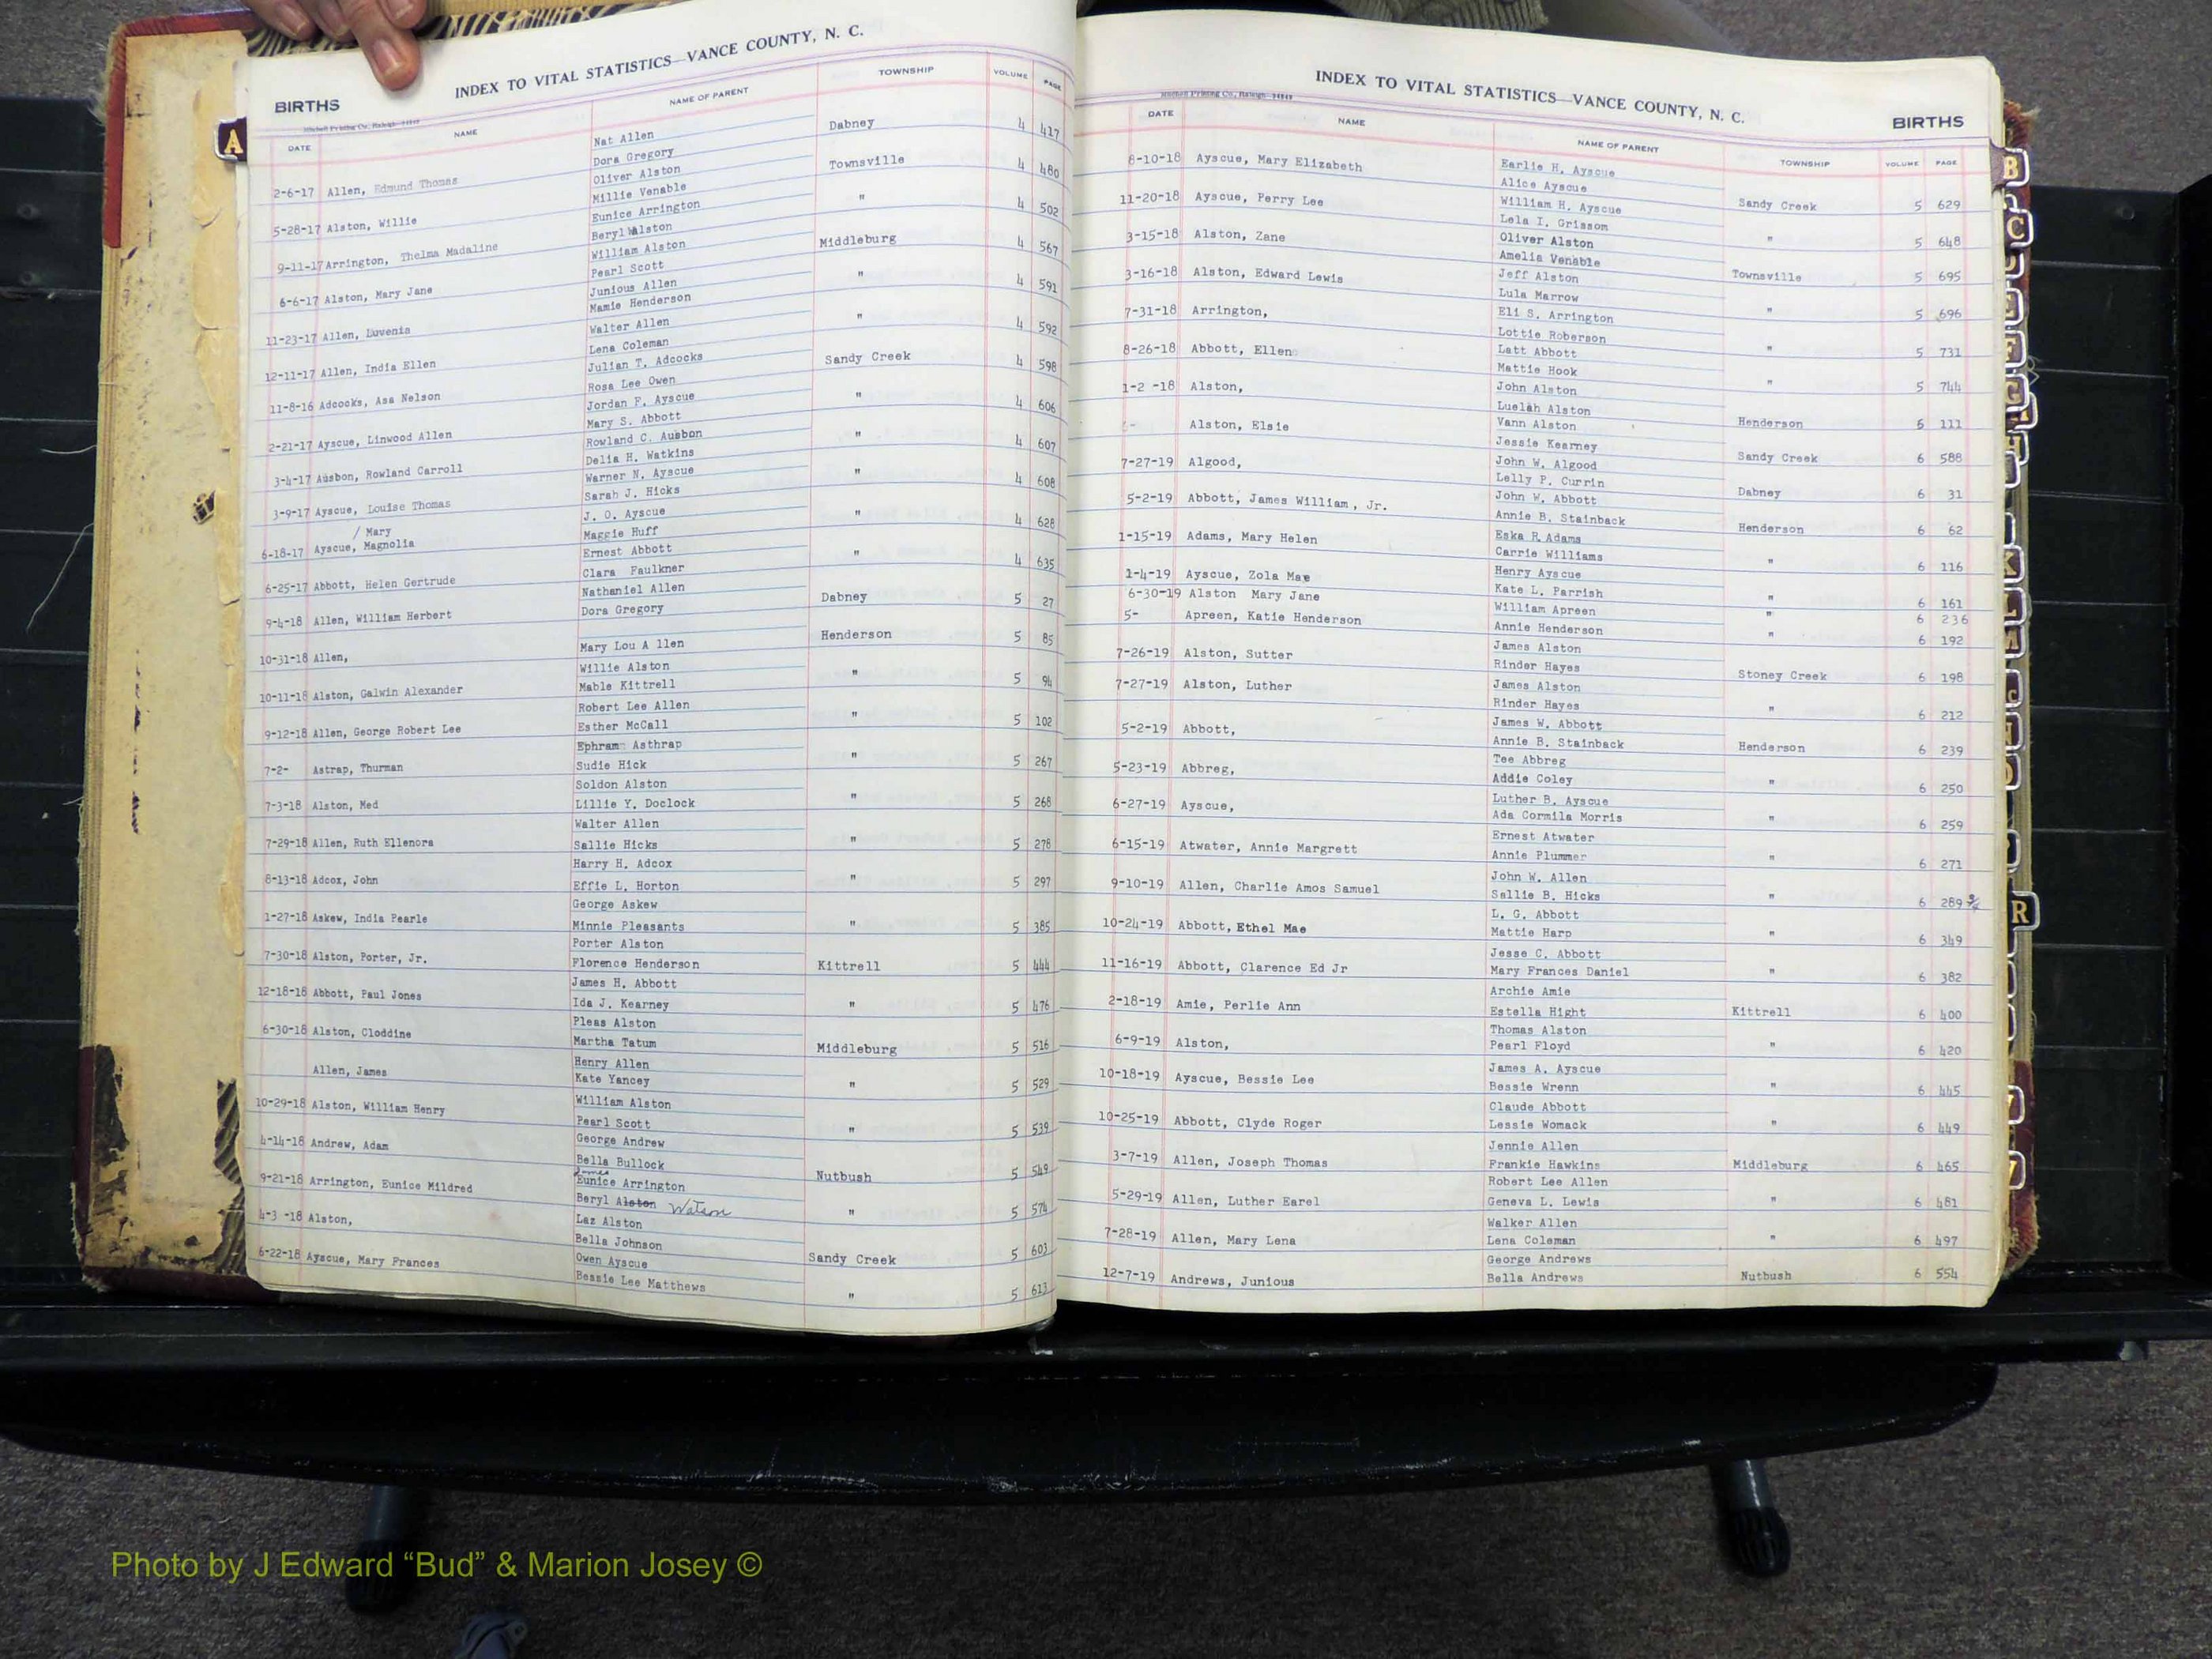 INDEX TO VITAL STATISTICS—VANCE COUNTY, N. C.
BIRTHS
Mitchell Printing Co., Raleigh—34849
DATE NAME NAME OF PARENT TOWNSHIP VOLUME PAGE
2-6-17 Allen, Edmund Thomas Nat Allen Dabney 4 417
Dora Gregory
5-28-17 Alston, Willie Oliver Alston Townsville 4 480
Millie Venable
9-11-17 Arrington, Thelma Madaline Eunice Arrington " 4 502
Beryl Walston
6-6-17 Alston, Mary Jane William Alston Middleburg 4 567
Pearl Scott
11-23-17 Allen, Luvenia Junious Allen " 4 591
Mamie Henderson
12-11-17 Allen, India Ellen Walter Allen " 4 592
Lena Coleman
11-8-16 Adcocks, Asa Nelson Julian T. Adcocks Sandy Creek 4 598
Rosa Lee Owen
2-21-17 Ayscue, Linwood Allen Jordan F. Ayscue " 4 606
Mary S. Abbott
3-4-17 Ausbon, Rowland Carroll Rowland C. Ausbon " 4 607
Delia H. Watkins
3-9-17 Ayscue, Louise Thomas Warner N. Ayscue " 4 608
Sarah J. Hicks
/ Mary
6-18-17 Ayscue, Magnolia J. O. Ayscue " 4 628
Maggie Huff
6-25-17 Abbott, Helen Gertrude Ernest Abbott " 4 635
Clara Faulkner
9-4-18 Allen, William Herbert Nathaniel Allen Dabney 5 27
Dora Gregory
10-31-18 Allen, Mary Lou A llen Henderson 5 85
10-11-18 Alston, Galwin Alexander Willie Alston " 5 94
Mable Kittrell
9-12-18 Allen, George Robert Lee Robert Lee Allen " 5 102
Esther McCall
7-2- Astrap, Thurman Ephram Asthrap " 5 267
Sudie Hick
7-3-18 Alston, Med Soldon Alston " 5 268
Lillie Y. Doclock
7-29-18 Allen, Ruth Ellenora Walter Allen " 5 278
Sallie Hicks
8-13-18 Adcox, John Harry H. Adcox " 5 297
Effie L. Horton
1-27-18 Askew, India Pearle George Askew " 5 385
Minnie Pleasants
7-30-18 Alston, Porter, Jr. Porter Alston Kittrell 5 444
Florence Henderson
12-18-18 Abbott, Paul Jones James H. Abbott " 5 476
Ida J. Kearney
6-30-18 Alston, Cloddine Pleas Alston Middleburg 5 516
Martha Tatum
Allen, James Henry Allen " 5 529
Kate Yancey
10-29-18 Alston, William Henry William Alston " 5 539
Pearl Scott
4-14-18 Andrew, Adam George Andrew Nutbush 5 549
Bella Bullock
9-21-18 Arrington, Eunice Mildred Eunice Arrington " 5 574
Beryl Alston Watson
4-3 -18 Alston, Laz Alston Sandy Creek 5 603
Bella Johnson
6-22-18 Ayscue, Mary Frances Owen Ayscue " 5 613
Bessie Lee Matthews
INDEX TO VITAL STATISTICS—VANCE COUNTY, N. C.
BIRTHS
Mitchell Printing Co., Raleigh—34849
DATE NAME NAME OF PARENT TOWNSHIP VOLUME PAGE
8-10-18 Ayscue, Mary Elizabeth Earlie H. Ayscue Sandy Creek 5 629
Alice Ayscue
11-20-18 Ayscue, Perry Lee William H. Ayscue " 5 648
Lela I. Grissom
3-15-18 Alston, Zane Oliver Alston Townsville 5 695
Amelia Venable
3-16-18 Alston, Edward Lewis Jeff Alston " 5 696
Lula Marrow
7-31-18 Arrington, Eli S. Arrington " 5 731
Lottie Roberson
8-26-18 Abbott, Ellen Latt Abbott " 5 744
Mattie Hook
1-2 -18 Alston, John Alston Henderson 5 111
Luelah Alston
Alston, Elsie Vann Alston Sandy Creek 6 588
Jessie Kearney
7-27-19 Algood, John W. Algood Dabney 6 31
Lelly P. Currin
5-2-19 Abbott, James William, Jr. John W. Abbott Henderson 6 62
Annie B. Stainback
1-15-19 Adams, Mary Helen Eska R. Adams " 6 116
Carrie Williams
1-4-19 Ayscue, Zola Mae Henry Ayscue " 6 161
Kate L. Parrish
6-30-19 Alston Mary Jane " 6 236
5- Apreen, Katie Henderson William Apreen " 6 192
Annie Henderson
7-26-19 Alston, Sutter James Alston Stoney Creek 6 198
Rinder Hayes
7-27-19 Alston, Luther James Alston " 6 212
Rinder Hayes
5-2-19 Abbott, James W. Abbott Henderson 6 239
Annie B. Stainback
5-23-19 Abbreg, Tee Abbreg " 6 250
Addie Coley
6-27-19 Ayscue, Luther B. Ayscue " 6 259
Ada Cormila Morris
6-15-19 Atwater, Annie Margrett Ernest Atwater " 6 271
Annie Plummer
9-10-19 Allen, Charlie Amos Samuel John W. Allen " 6 289
Sallie B. Hicks
10-24-19 Abbott, Ethel Mae L. G. Abbott " 6 349
Mattie Harp
11-16-19 Abbott, Clarence Ed Jr Jesse C. Abbott " 6 382
Mary Frances Daniel
2-18-19 Amie, Perlie Ann Archie Amie Kittrell 6 400
Estella Hight
6-9-19 Alston, Thomas Alston " 6 420
Pearl Floyd
10-18-19 Ayscue, Bessie Lee James A. Ayscue " 6 445
Bessie Wrenn
10-25-19 Abbott, Clyde Roger Claude Abbott " 6 449
Lessie Womack
3-7-19 Allen, Joseph Thomas Jennie Allen Middleburg 6 465
Frankie Hawkins
5-29-19 Allen, Luther Earel Robert Lee Allen " 6 481
Geneva L. Lewis
7-28-19 Allen, Mary Lena Walker Allen " 6 497
Lena Coleman
12-7-19 Andrews, Junious George Andrews Nutbush 6 554
Bella Andrews
A
B
C
E
F
G
H
K
L
M
N
R
Photo by J Edward “Bud” & Marion Josey ©